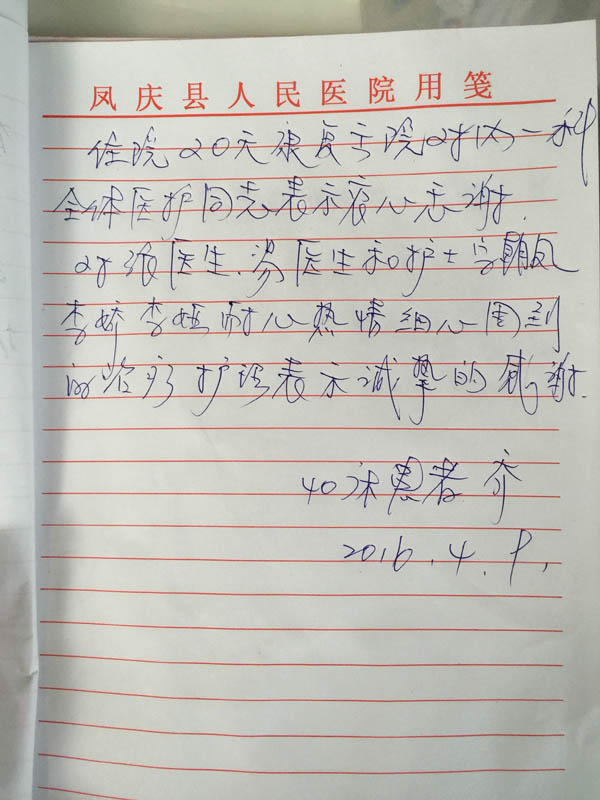 凤庆县人民医院用笺
住院20天康复于院对内一科
全体医护同志表示衷心感谢.
对张医生、汤医生和护士字朝凤
李娇 李娅耐心热情细心周到
的治疗护理表示诚挚的感谢.
40床患者 乔
2016.4.9.